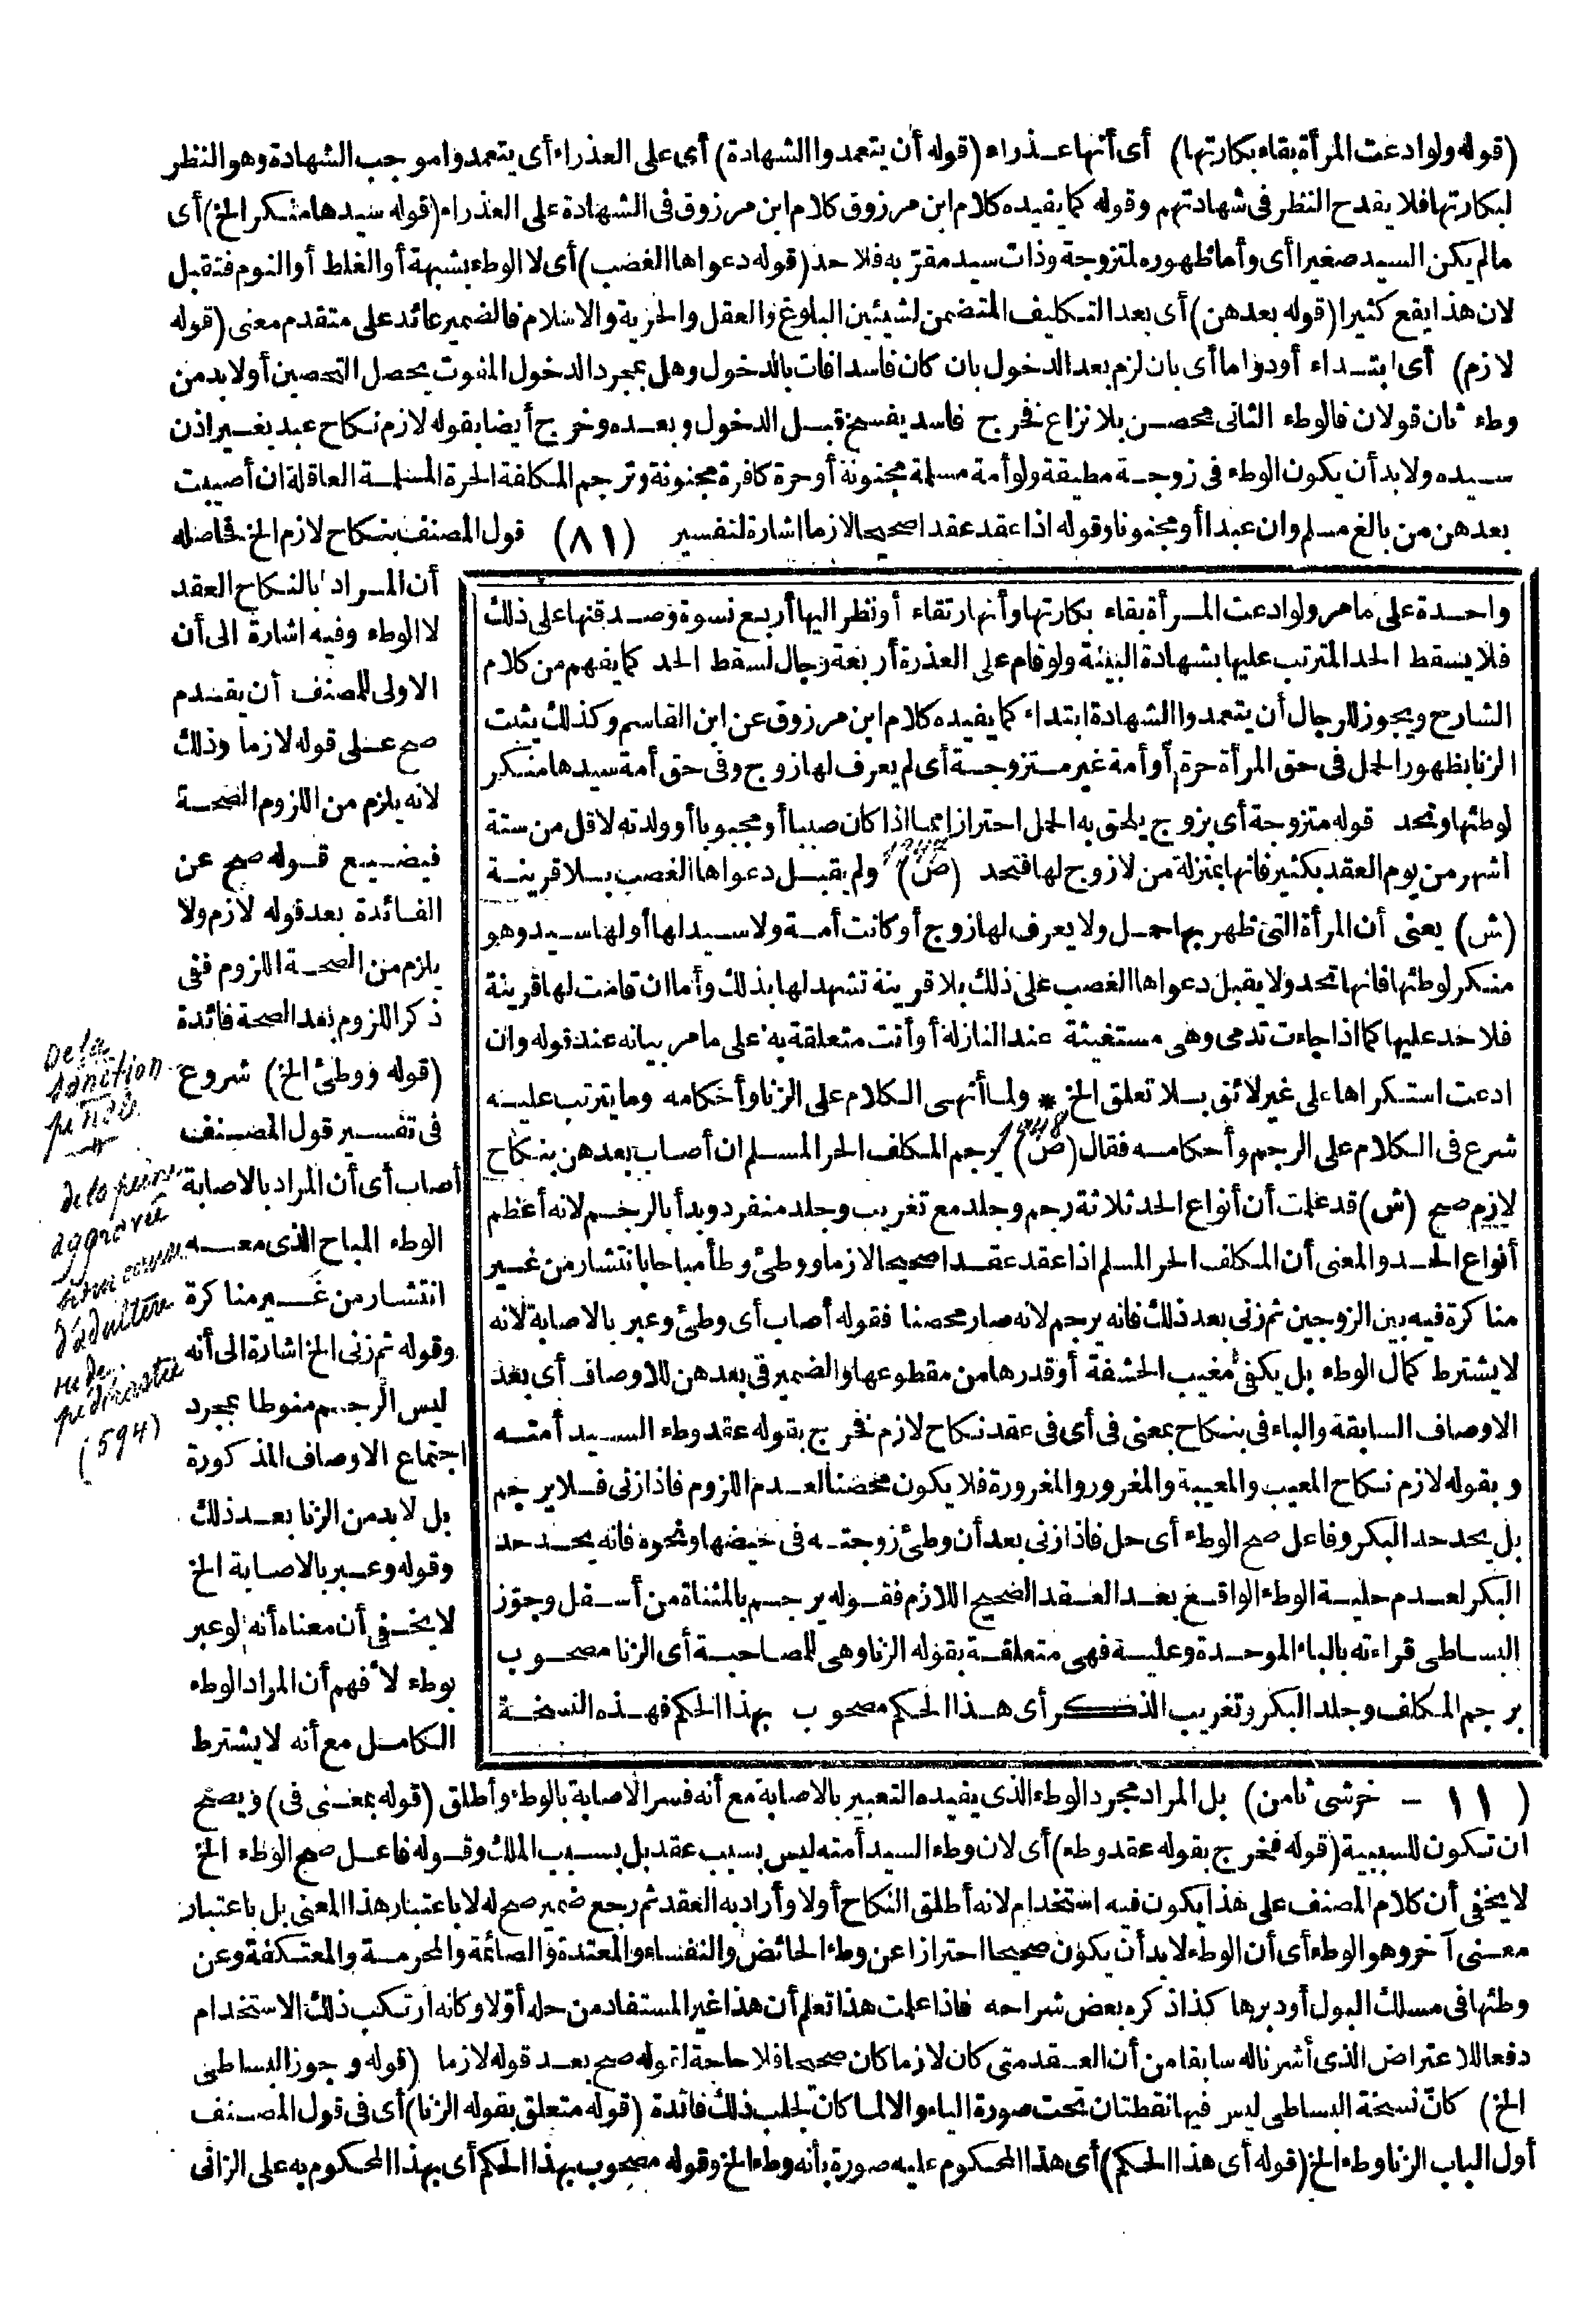 (قوله ولو ادعت المرأة بقاء بكارتها) أى أنها عذراء (قوله أن يتعمدوا الشهادة) أى على العذراء أى يتعمدوا موجب الشهادة وهو النظر
لبكارتها فلا يقدح النظر فى شهادتهم وقوله كما يفيده كلام ابن مرزوق كلام ابن مرزوق فى الشهادة على العذراء (قوله سيدها منكر الخ) أى
مالم يكن السيد صغيرا أى وأما ظهوره لمتزوجة وذات سيد مقرّ به فلا حد (قوله دعواها الغصب) أى لا الوطء بشبهة أو الغلط أو النوم فتقبل
لان هذا يقع كثيرا (قوله بعدهن) أى بعد التكليف المتضمن لشيئين البلوغ والعقل والحرية والاسلام فالضمير عائد على متقدم معنى (قوله
لازم) أى ابتداء أو دواما أى بان لزم بعد الدخول بان كان فاسدا فات بالدخول وهل بمجرد الدخول المفوت يحصل التحصين أو لا بد من
وطء ثان قولان فالوطء الثانى محصن بلا نزاع فخرج فاسد يفسخ قبل الدخول وبعده وخرج أيضا بقوله لازم نكاح عبد بغير اذن
سيده ولا بد أن يكون الوطء فى زوجة مطيقة ولو أمة مسلمة مجنونة أو حرة كافرة مجنونة وترجم المكلفة الحرة المسلمة العاقلة ان أصيبت
بعدهن من بالغ مسلم وان عبدا أو مجنونا وقوله اذا عقد عقدا صحيحا لازما اشارة لتفسير (٨١) قول المصنف بنكاح لازم الخ فحاصله
أن المراد بالنكاح العقد
لا الوطء وفيه اشارة الى أن
الاولى للمصنف أن يقدم
صح على قوله لازما وذلك
لانه يلزم من اللزوم الصحة
فيضيع قوله صح عن
الفائدة بعد قوله لازم ولا
يلزم من الصحة اللزوم ففى
ذكر اللزوم بعد الصحة فائدة
(قوله ووطئ الخ) شروع
فى تفسير قول المصنف
أصاب أى أن المراد بالاصابة
الوطء المباح الذى معه
انتشار من غير مناكرة
وقوله ثم زنى الخ اشارة الى أنه
ليس الرجم منوطا بمجرد
اجتماع الاوصاف المذكورة
بل لا بد من الزنا بعد ذلك
وقوله وعبر بالاصابة الخ
لا يخفى أن معناه أنه لو عبر
بوطء لأفهم أن المراد الوطء
الكامل مع أنه لا يشترط
واحدة على ما مر ولو ادعت المرأة بقاء بكارتها وأنها رتقاء أو نظر اليها أربع نسوة وصدقنها على ذلك
فلا يسقط الحد المترتب عليها بشهادة البينة ولو قام على العذرة أربعة رجال لسقط الحد كما يفهم من كلام
الشارح ويجوز للرجال أن يتعمدوا الشهادة ابتداء كما يفيده كلام ابن مرزوق عن ابن القاسم وكذلك يثبت
الزنا بظهور الحمل فى حق المرأة حرة أو أمة غير متزوجة أى لم يعرف لها زوج وفى حق أمة سيدها منكر
لوطئها وتحد قوله متزوجة أى بزوج يلحق به الحمل احترازا مما اذا كان صبيا أو مجبوبا أو ولدته لاقل من ستة
أشهر من يوم العقد بكثير فانها بمنزلة من لا زوج لها فتحد (ص) 1247 ولم يقبل دعواها الغصب بلا قرينة
(ش) يعنى أن المرأة التى ظهر بها حمل ولا يعرف لها زوج أو كانت أمة ولا سيد لها أو لها سيد وهو
منكر لوطئها فانها تحد ولا يقبل دعواها الغصب على ذلك بلا قرينة تشهد لها بذلك وأما ان قامت لها قرينة
فلا حد عليها كما اذا جاءت تدمى وهى مستغيثة عند النازلة أو أتت متعلقة به على ما مر بيانه عند قوله وان
ادعت استكراها على غير لائق بلا تعلق الخ * ولما أنهى الكلام على الزنا وأحكامه وما يترتب عليه
شرع فى الكلام على الرجم وأحكامه فقال (ص) 1248 يرجم المكلف الحر المسلم ان أصاب بعدهن بنكاح
لازم صح (ش) قد علمت أن أنواع الحد ثلاثة رجم وجلد مع تغريب وجلد منفرد وبدأ بالرجم لانه أعظم
أنواع الحد والمعنى أن المكلف الحر المسلم اذا عقد عقدا صحيحا لازما ووطئ وطأ مباحا بانتشار من غير
مناكرة فيه بين الزوجين ثم زنى بعد ذلك فانه يرجم لانه صار محصنا فقوله أصاب أى وطئ وعبر بالاصابة لانه
لا يشترط كمال الوطء بل يكفى مغيب الحشفة أو قدرها من مقطوعها والضمير فى بعدهن للاوصاف أى بعد
الاوصاف السابقة والباء فى بنكاح بمعنى فى أى فى عقد نكاح لازم فخرج بقوله عقد وطء السيد أمته
وبقوله لازم نكاح المعيب والمعيبة والمغرور والمغرورة فلا يكون محصنا لعدم اللزوم فاذا زنى فلا يرجم
بل يحد حد البكر وفاعل صح الوطء أى حل فاذا زنى بعد أن وطئ زوجته فى حيضها ونحوه فانه يحد حد
البكر لعدم حلية الوطء الواقع بعد العقد الصحيح اللازم فقوله يرجم بالمثناة من أسفل وجوّز
البساطى قراءته بالباء الموحدة وعليه فهى متعلقة بقوله الزنا وهى للمصاحبة أى الزنا مصحوب
برجم المكلف وجلد البكر وتغريب الذكر أى هذا الحكم مصحوب بهذا الحكم فهذه النسخة
De la
sanction
pénale
de la peine
aggravée
d'adultère
ou de
pédérastie
(594)
(١١ - خرشى ثامن) بل المراد مجرد الوطء الذى يفيده التعبير بالاصابة مع أنه فسر الاصابة بالوطء وأطلق (قوله بمعنى فى) ويصح
ان تكون للسببية (قوله فخرج بقوله عقد وطء) أى لان وطء السيد أمته ليس بسبب عقد بل بسبب الملك وقوله فاعل صح الوطء الخ
لا يخفى أن كلام المصنف على هذا يكون فيه استخدام لانه أطلق النكاح أولا وأراد به العقد ثم رجع ضمير صح له لا باعتبار هذا المعنى بل باعتبار
معنى آخر وهو الوطء أى أن الوطء لا بد أن يكون صحيحا احترازا عن وطء الحائض والنفساء والمعتدة والصائمة والمحرمة والمعتكفة وعن
وطئها فى مسلك البول أو دبرها كذا ذكره بعض شراحه فاذا علمت هذا تعلم أن هذا غير المستفاد من حله أوّلا وكانه ارتكب ذلك الاستخدام
دفعا للاعتراض الذى أشرنا له سابقا من أن العقد متى كان لازما كان صحيحا فلا حاجة لقوله صح بعد قوله لازما (قوله وجوز البساطى
الخ) كأنّ نسخة البساطى ليس فيها نقطتان تحت صورة الياء والا لما كان لجلب ذلك فائدة (قوله متعلق بقوله الزنا) أى فى قول المصنف
أول الباب الزنا وطء الخ (قوله أى هذا الحكم) أى هذا المحكوم عليه صورة بأنه وطء الخ وقوله مصحوب بهذا الحكم أى بهذا المحكوم به على الزانى